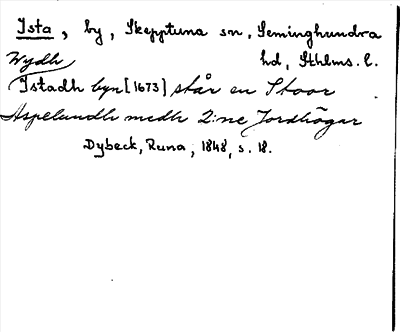 Ista, by, Skepptuna sn, Seminghundra
hd, Sthlms. l.
Wydh
Istadh byn [1673] står en Stoor
Aspelundh medh 2:ne Jordhögar
Dybeck, Runa, 1848, s. 18.